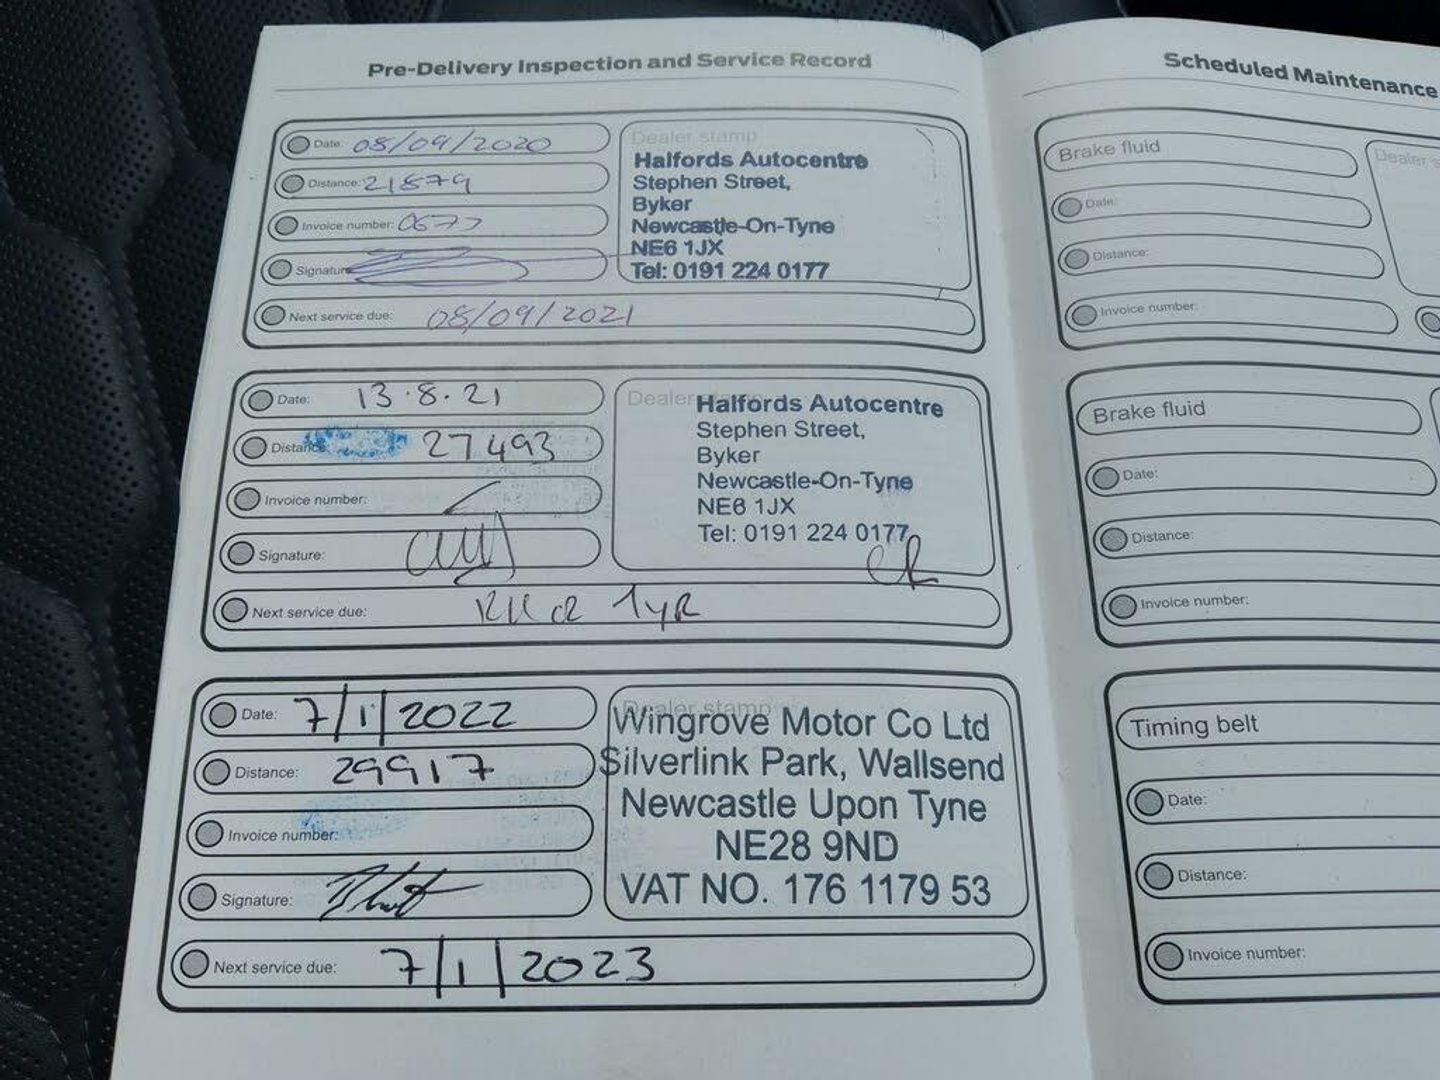 Pre-Delivery Inspection and Service Record
Date: 08/09/2020
Distance: 21879
Invoice number: 0677
Signature
Next service due: 08/09/2021
Dealer stamp
Halfords Autocentre
Stephen Street,
Byker
Newcastle-On-Tyne
NE6 1JX
Tel: 0191 224 0177
Date: 13.8.21
Distance 27493
Invoice number:
Signature:
Next service due: 1yR
Dealer
Halfords Autocentre
Stephen Street,
Byker
Newcastle-On-Tyne
NE6 1JX
Tel: 0191 224 0177
Date: 7/1/2022
Distance: 29917
Invoice number:
Signature:
Next service due: 7/1/2023
Dealer stamp
Wingrove Motor Co Ltd
Silverlink Park, Wallsend
Newcastle Upon Tyne
NE28 9ND
VAT NO. 176 1179 53
Scheduled Maintenance
Brake fluid
Date:
Distance:
Invoice number:
Dealer s
Brake fluid
Date:
Distance:
Invoice number:
Timing belt
Date:
Distance:
Invoice number: